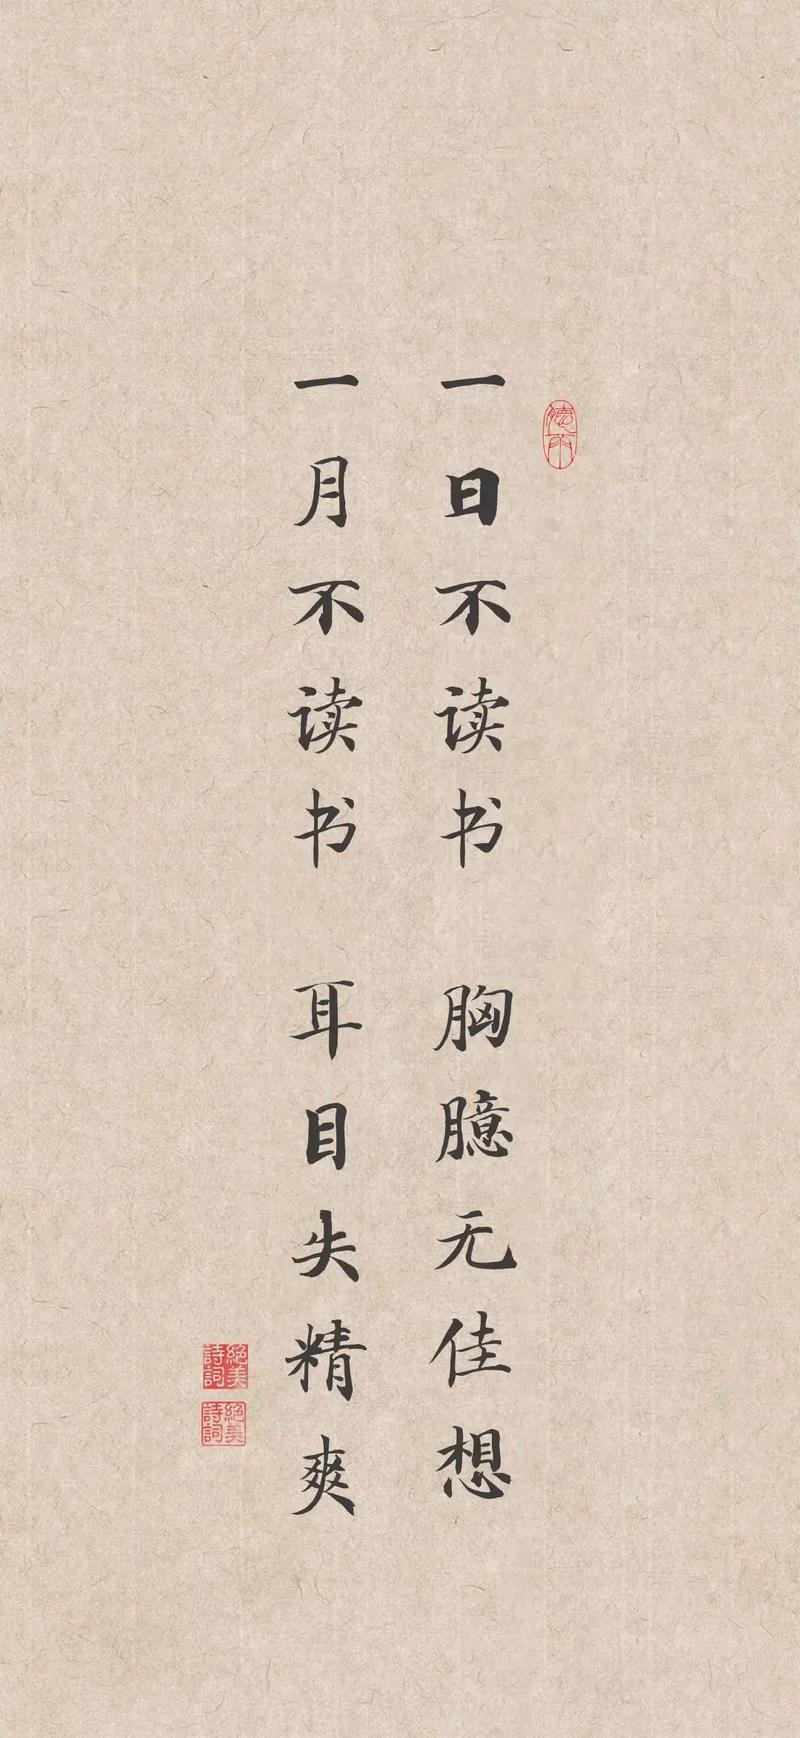 一日不读书 胸臆无佳想
一月不读书 耳目失精爽
絕美詩詞
絕美詩詞